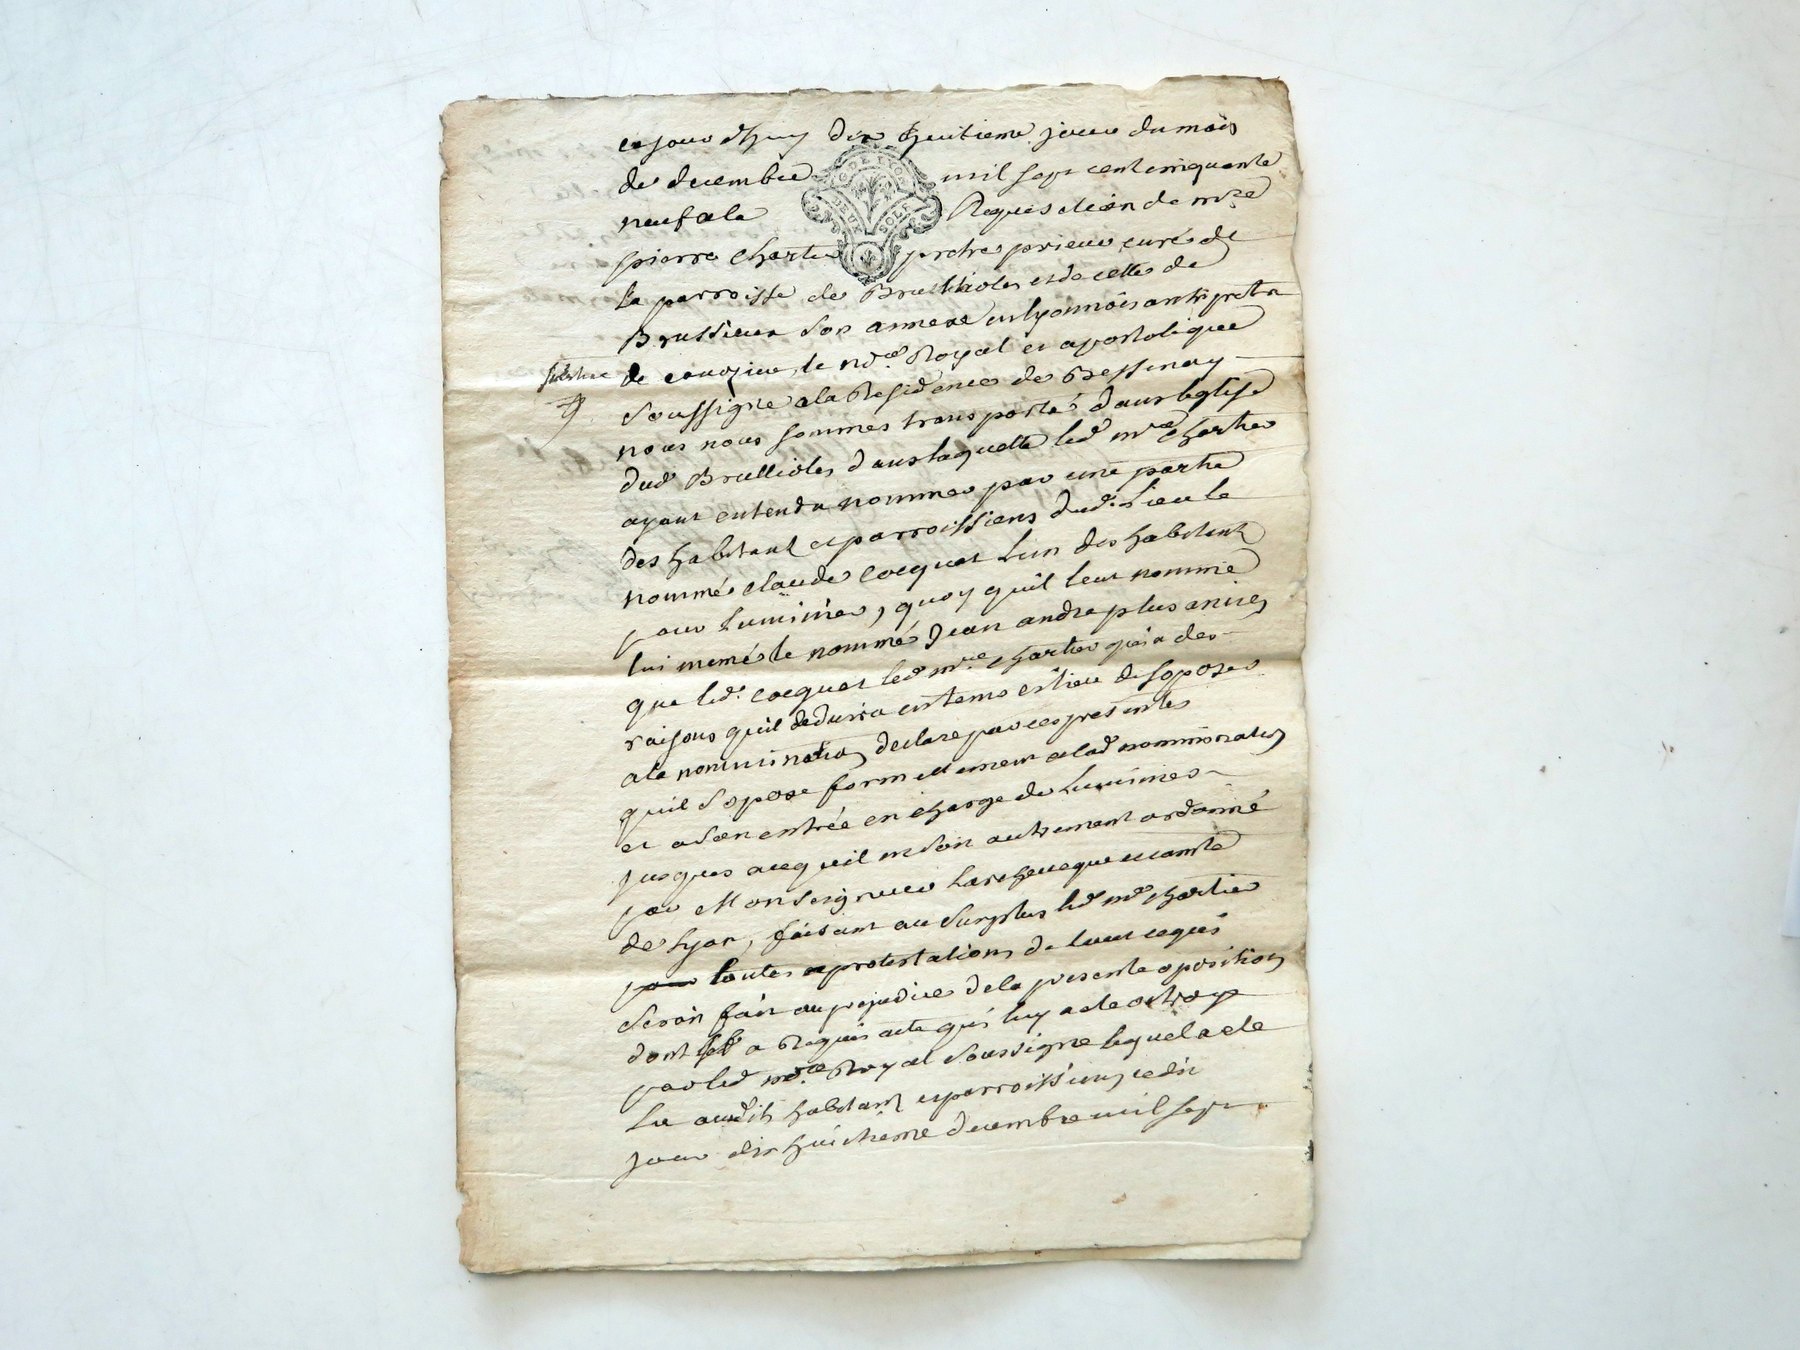 ce jour d'huy dix huitieme jour du mois
de decembre mil sept cent cinquante
neuf a la Requisition de mre
pierre Chartier pretre prieur curé de
la parroisse de Brullioles et de celle de
Brussieux son annexe en lyonnois archipretré
de courzieu, le nore Royal et apostolique
soussigné a la Residence de Bessenay
nous nous sommes transporté dans leglise
dud Brullioles dans laquelle led mre Chartier
ayant entendu nommer par une partie
des habitant et parroissiens dud. Lieu le
nommé claude cocquet Lun des habitant
pour Luminier, quoy quil leut nommé
lui meme le nommé Jean andre plus ancien
que led. cocquet led mre Chartier qui a des
raisons quil deduira en tems et lieu de soposer
a la nomination declare par ces presentes
quil sopose formellement a lad nomination
et a son entrée en charge de Luminier
jusques acequil en soit autrement ordonné
par Monseigneur Larcheveque et comte
de Lyon, faisant au surplus led mre chartier
toutes protestations de tout ce qui
seroit fait au prejudice de la presente oposition
dont a Requis acte qui luy a ete octroyé
par led nore Royal soussigné lequel a ete
Lu audits habitant et parroissiens cedit
jour dix huitieme decembre mil sept